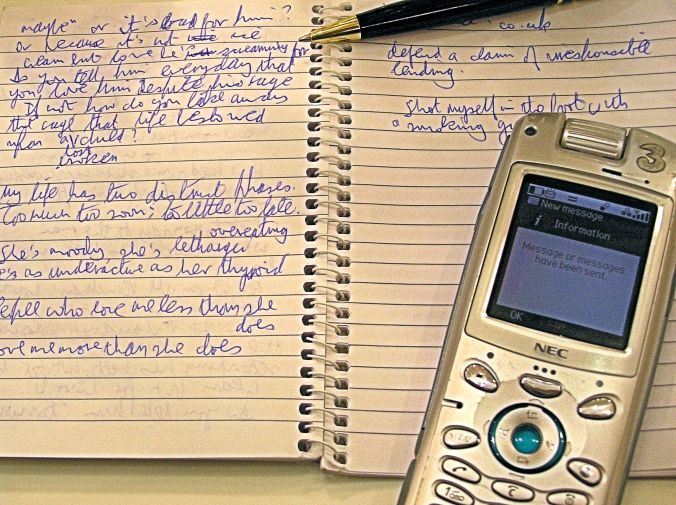 maybe" or it's dead for him?
or because it's not me
clean but love he screaming for
do you tell him everyday that
you love him despite his rage
If not how do you take away
that rage that life bestowed
upon a child?
lost
broken
My life has two distinct phases.
Too much too soon; too little too late.
overeating
She's moody she's lethargic
she's as underactive as her thyroid
people who love me less than she
does
love me more than she does
.co.uk
defend a claim of irresponsible
lending.
Shot myself in the foot with
a smoking gu
3
New message
Information
Message or messages
have been sent
OK
NEC
MENU
C
1